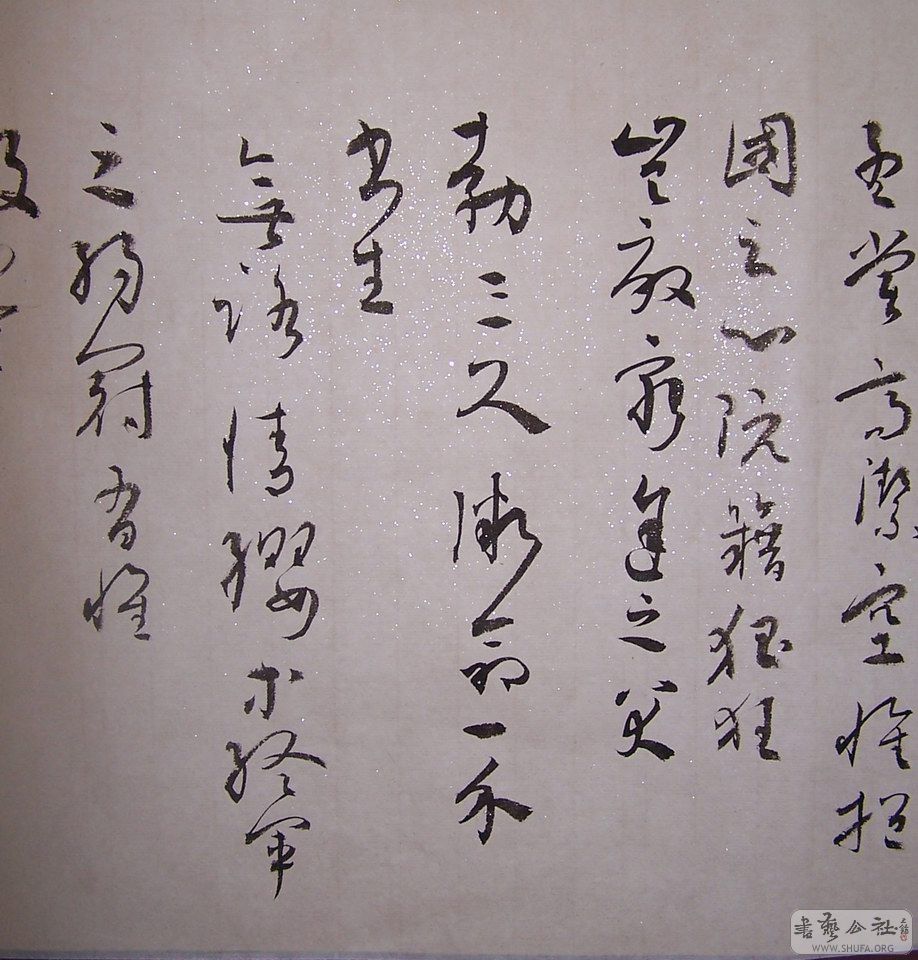 孟嘗高潔空懷報
國之心阮籍猖狂
豈效窮途之哭
勃三尺微命一介
書生
無路請纓等終軍
之弱冠有懷
投
書藝公社
WWW.SHUFA.ORG